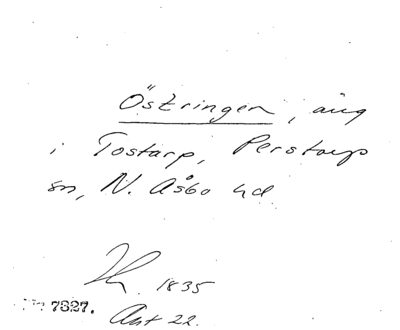 Östringen, äng
i Tostarp, Perstorp
sn, N. Åsbo hd
1835
7327.
Akt 22.